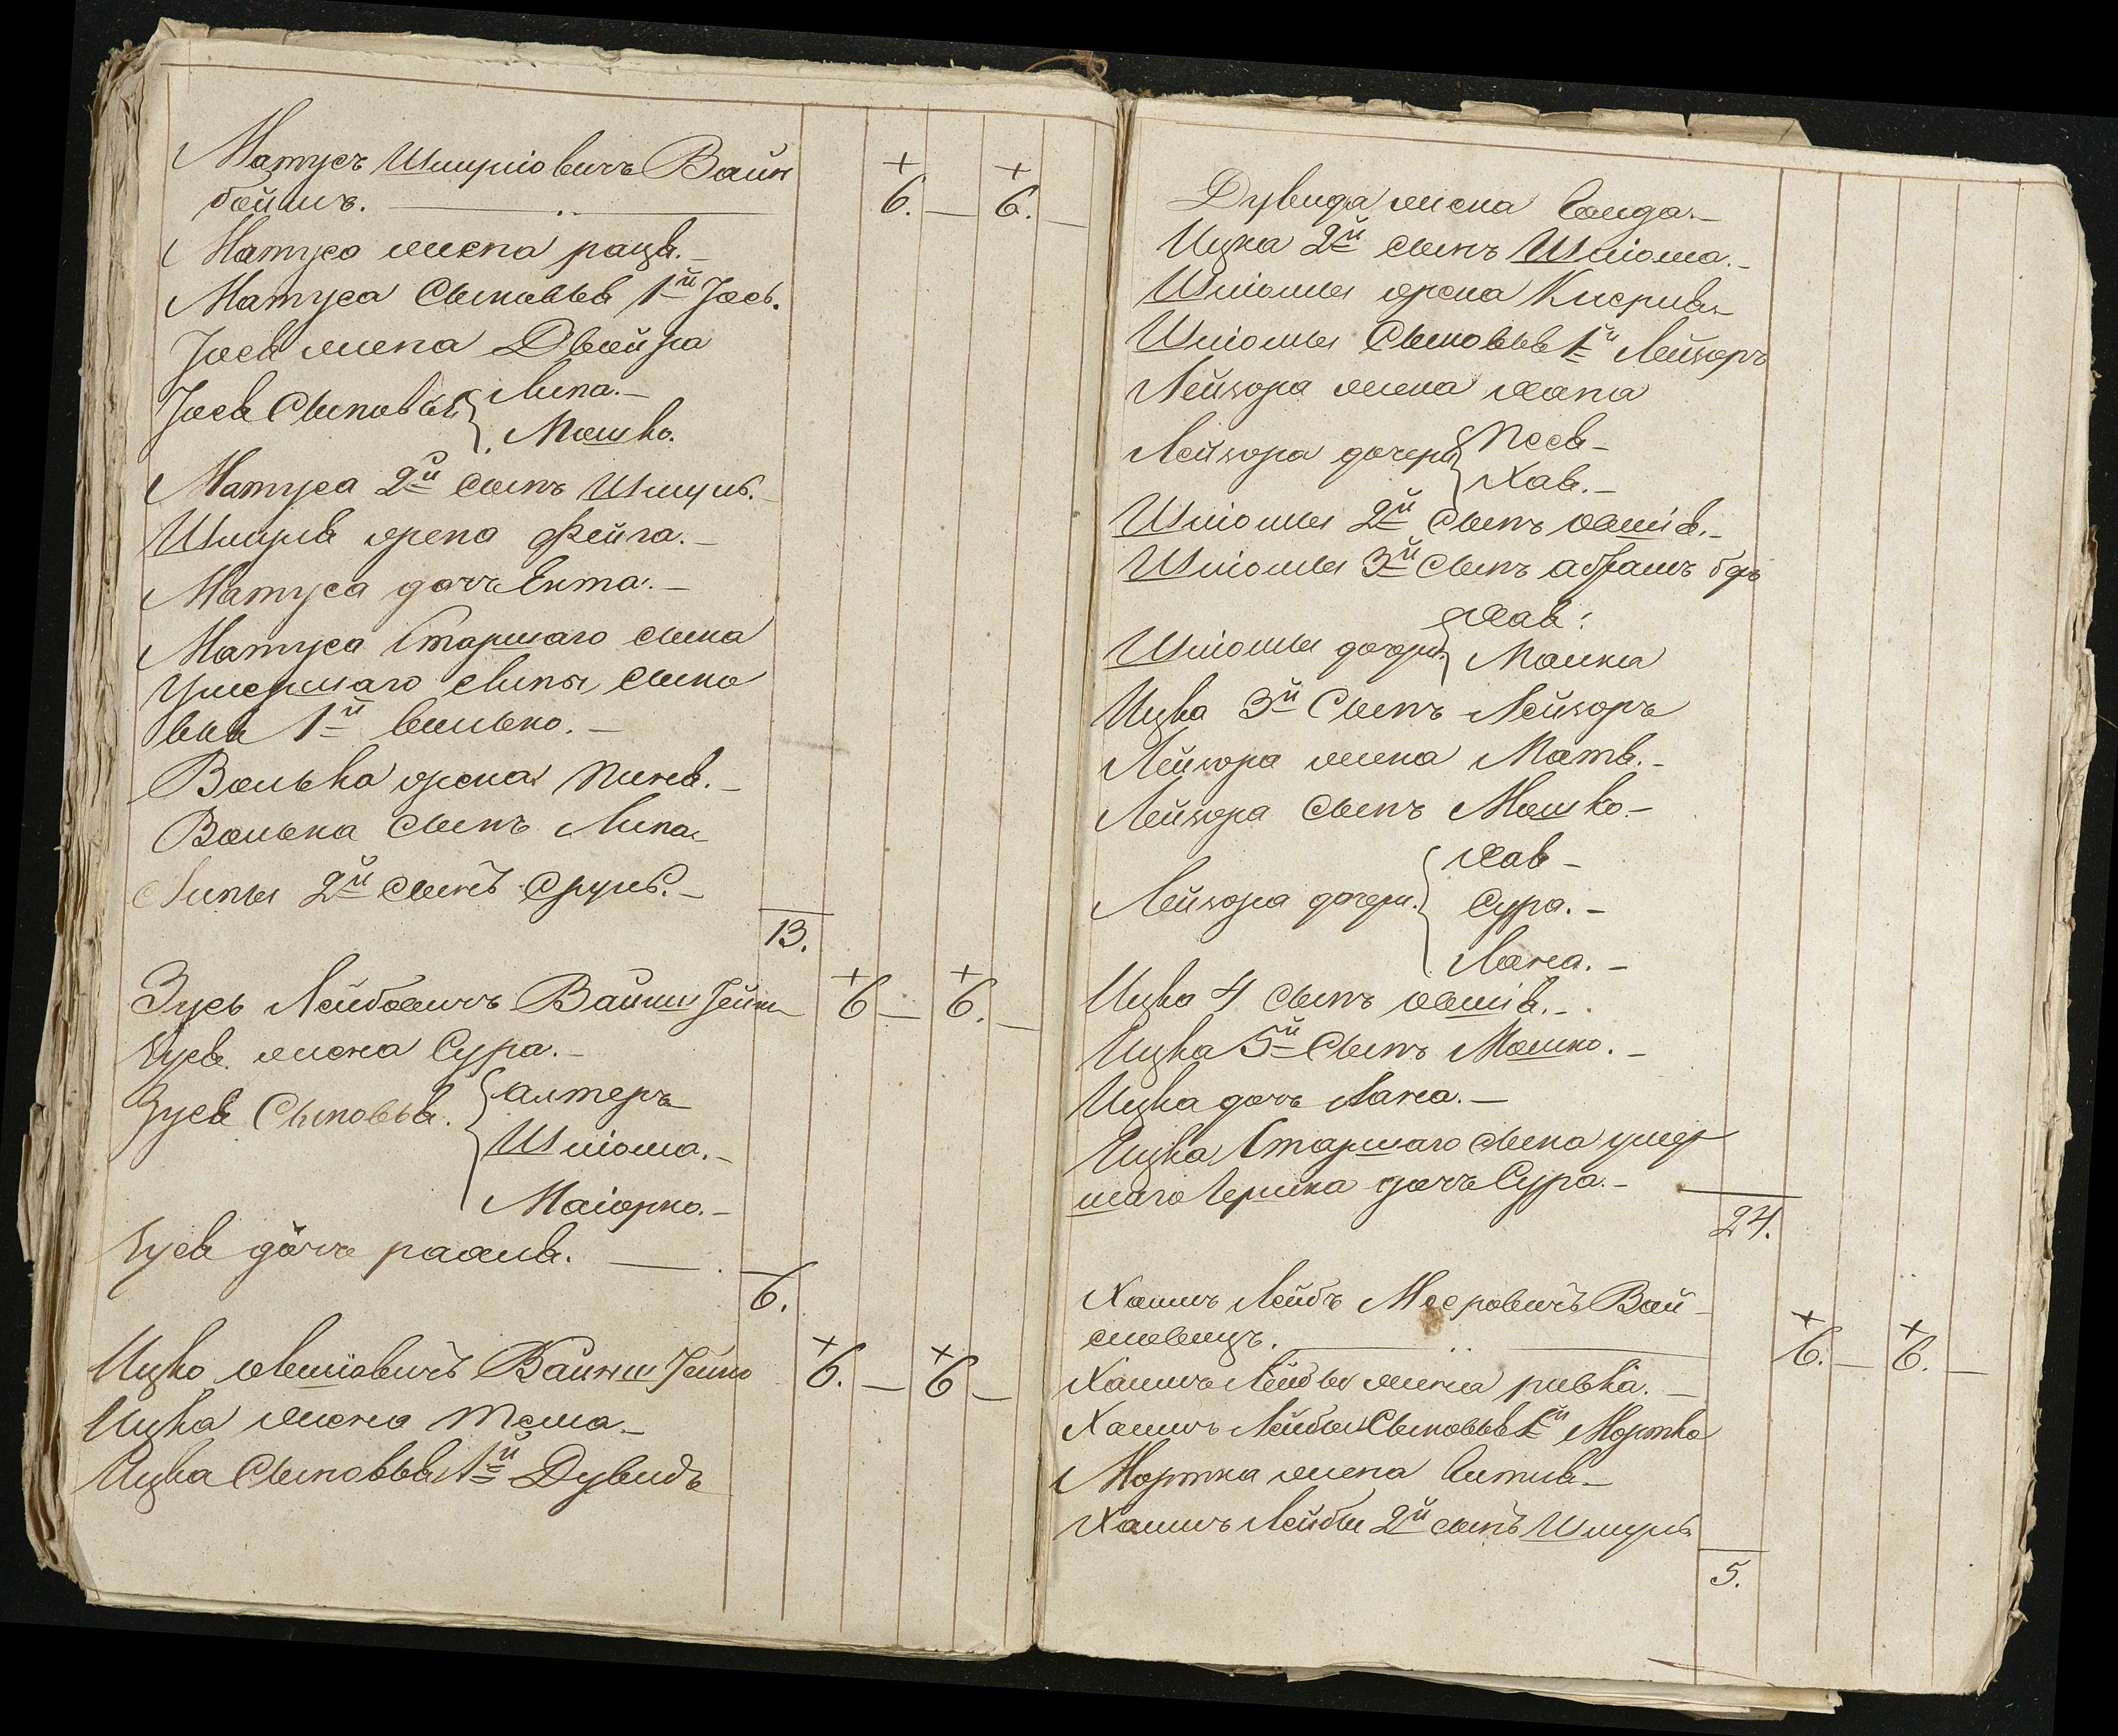 Матусъ Шмуліовичъ Вайн
боймъ. 6. — 6. —
Матуса жена рацѣ. —
Матуса Сыновья 1й Іось.
Іося жена Двойра
Іося Сыновья Липа. —
Мошко.
Матуса 2й сынъ Шмуль. —
Шмуля жена Фейга. —
Матуса дочь Ента. —
Матуса Старшаго сына
Умершаго Липы сыно
вья 1й Волько. —
Волька жена
Волька сынъ Липа
Липы 2й сынъ Сруль. —
13.
Зусь Лейбовичъ 6 — 6. —
Зуся жена Сура. —
Зуся Сыновья. алтеръ
Шліома. —
Маіорко. —
Зуся дочь рахля. —
6.
Ицко 6. — 6 —
Ицка жена Тема —
Ицка Сыновья 1й Дувидъ
Дувида жена
Ицка 2й сынъ Шліома. —
Шліомы жена
Шліомы Сыновья 1й Лейзоръ
Лейзора жена хана
Лейзора дочери Песя —
Хая. —
Шліомы 2й сынъ
Шліомы 3й сынъ абрамъ
хая.
Шліомы дочери Малка
Ицка 3й Сынъ Лейзоръ
Лейзора жена
Лейзора сынъ Мошко —
хая —
Лейзора дочери. Сура. —
Ицка 4 сынъ
Ицка 5й Сынъ Мошко. —
Ицка дочь
Ицка Старшаго сына умер
шаго Гершка дочь Сура. —
24.
Хаимъ Лейбъ Мееровичъ Вай
6. — 6. —
Хаимъ Лейбы жена ривка. —
Хаимъ Лейбы Сыновья 1й Мортко
Мортка жена
Хаимъ Лейбы 2й сынъ Шмуль
5.